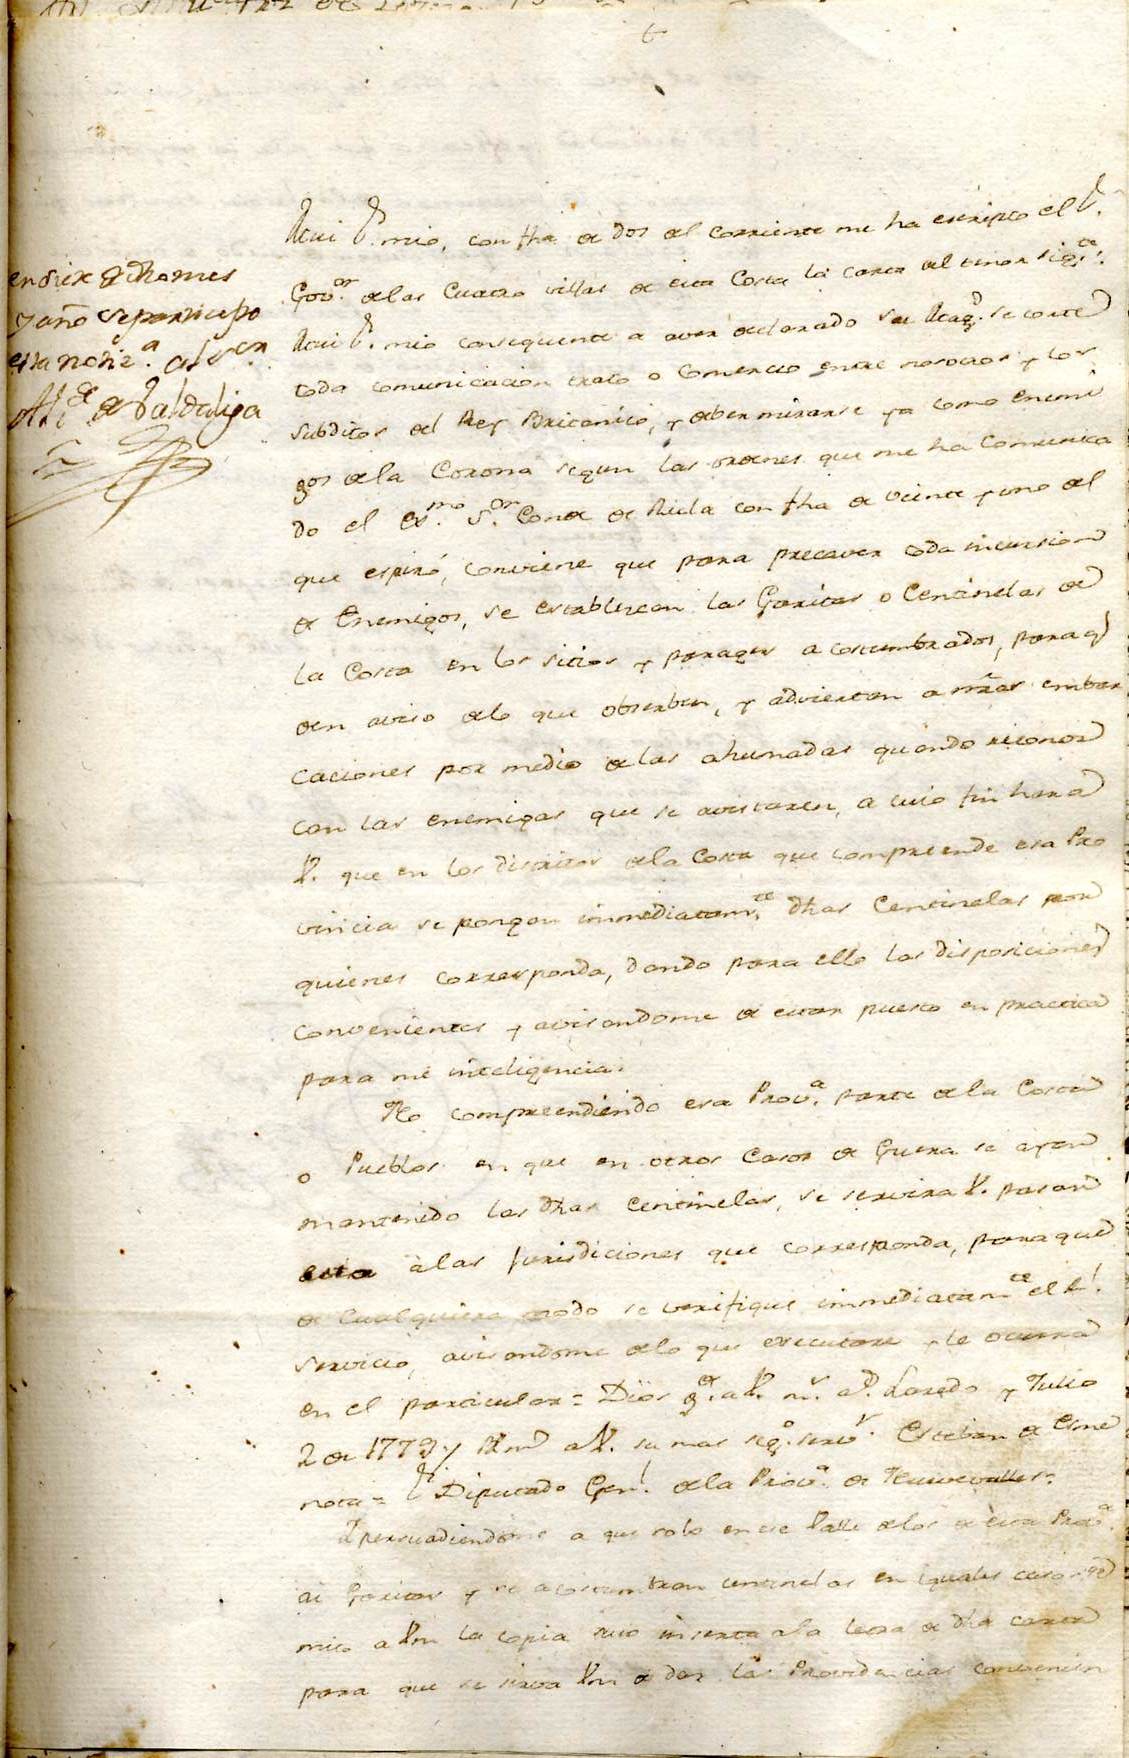 6
en diez de dho mes
y año se participo
esta notiz.ª al s.or
Alc.de de Valdaliga
Mui S.r mio, con fha de dos del corriente me ha escripto el S.r
Gov.or de las Cuatro villas de esta Costa la carta del tenor sig.te:
Mui S.r mio consequente a aver declarado su Mag.d se corte
toda comunicacion trato o Comercio entre nosotros y los
subditos del Rey Britanico, y deber mirarse ya como enemi
gos de la Corona segun las ordenes que me ha Comunica
do el Ex.mo S.or Conde de Ricla con fha de veinte y uno del
que espiró, conviene que para precaver toda incursion
de Enemigos, se establezcan las Garitas o Centinelas de
la Costa en los sitios y parages acostumbrados, para q.e
den aviso de lo que observen, y adviertan a nr̃as embar
caciones por medio de las ahumadas quando reconoz
can las enemigas que se avistaren, a cuio fin hara
V. que en los distritos de la Costa que compreende esa Pro
vincia se pongan immediatam.te dhas Centinelas por
quienes corresponda, dando para ello las disposiciones
convenientes y avisandome de estar puesto en practica
para mi inteligencia.
No compreendiendo esa Prov.ª parte de la Costa
o Pueblos en que en otros Casos de Guerra se ayan
mantenido las dhas Centinelas, se servira V. pasar
esta à las Jurisdiciones que corresponda, para que
de cualquiera modo se verifique immediatam.te el R.l
servicio, avisandome de lo que executare y le ocurra
en el particular = Dios g.e a V. m.s a.s Laredo y Julio
2 de 1779 y BLm de V. su mas seg.º serv.r Esteban de Esme
nota = S.r Diputado Gen.l de la Prov.ª de Nuevevalles =
Y persuadiendome a que solo en ese Valle de los de esta Prov.ª
ai Garitas y se acostumbran centinelas en iguales casos re
mito a Vm la copia que inserta a la letra de dha carta
para que se sirva Vm de dar las Providencias convenien